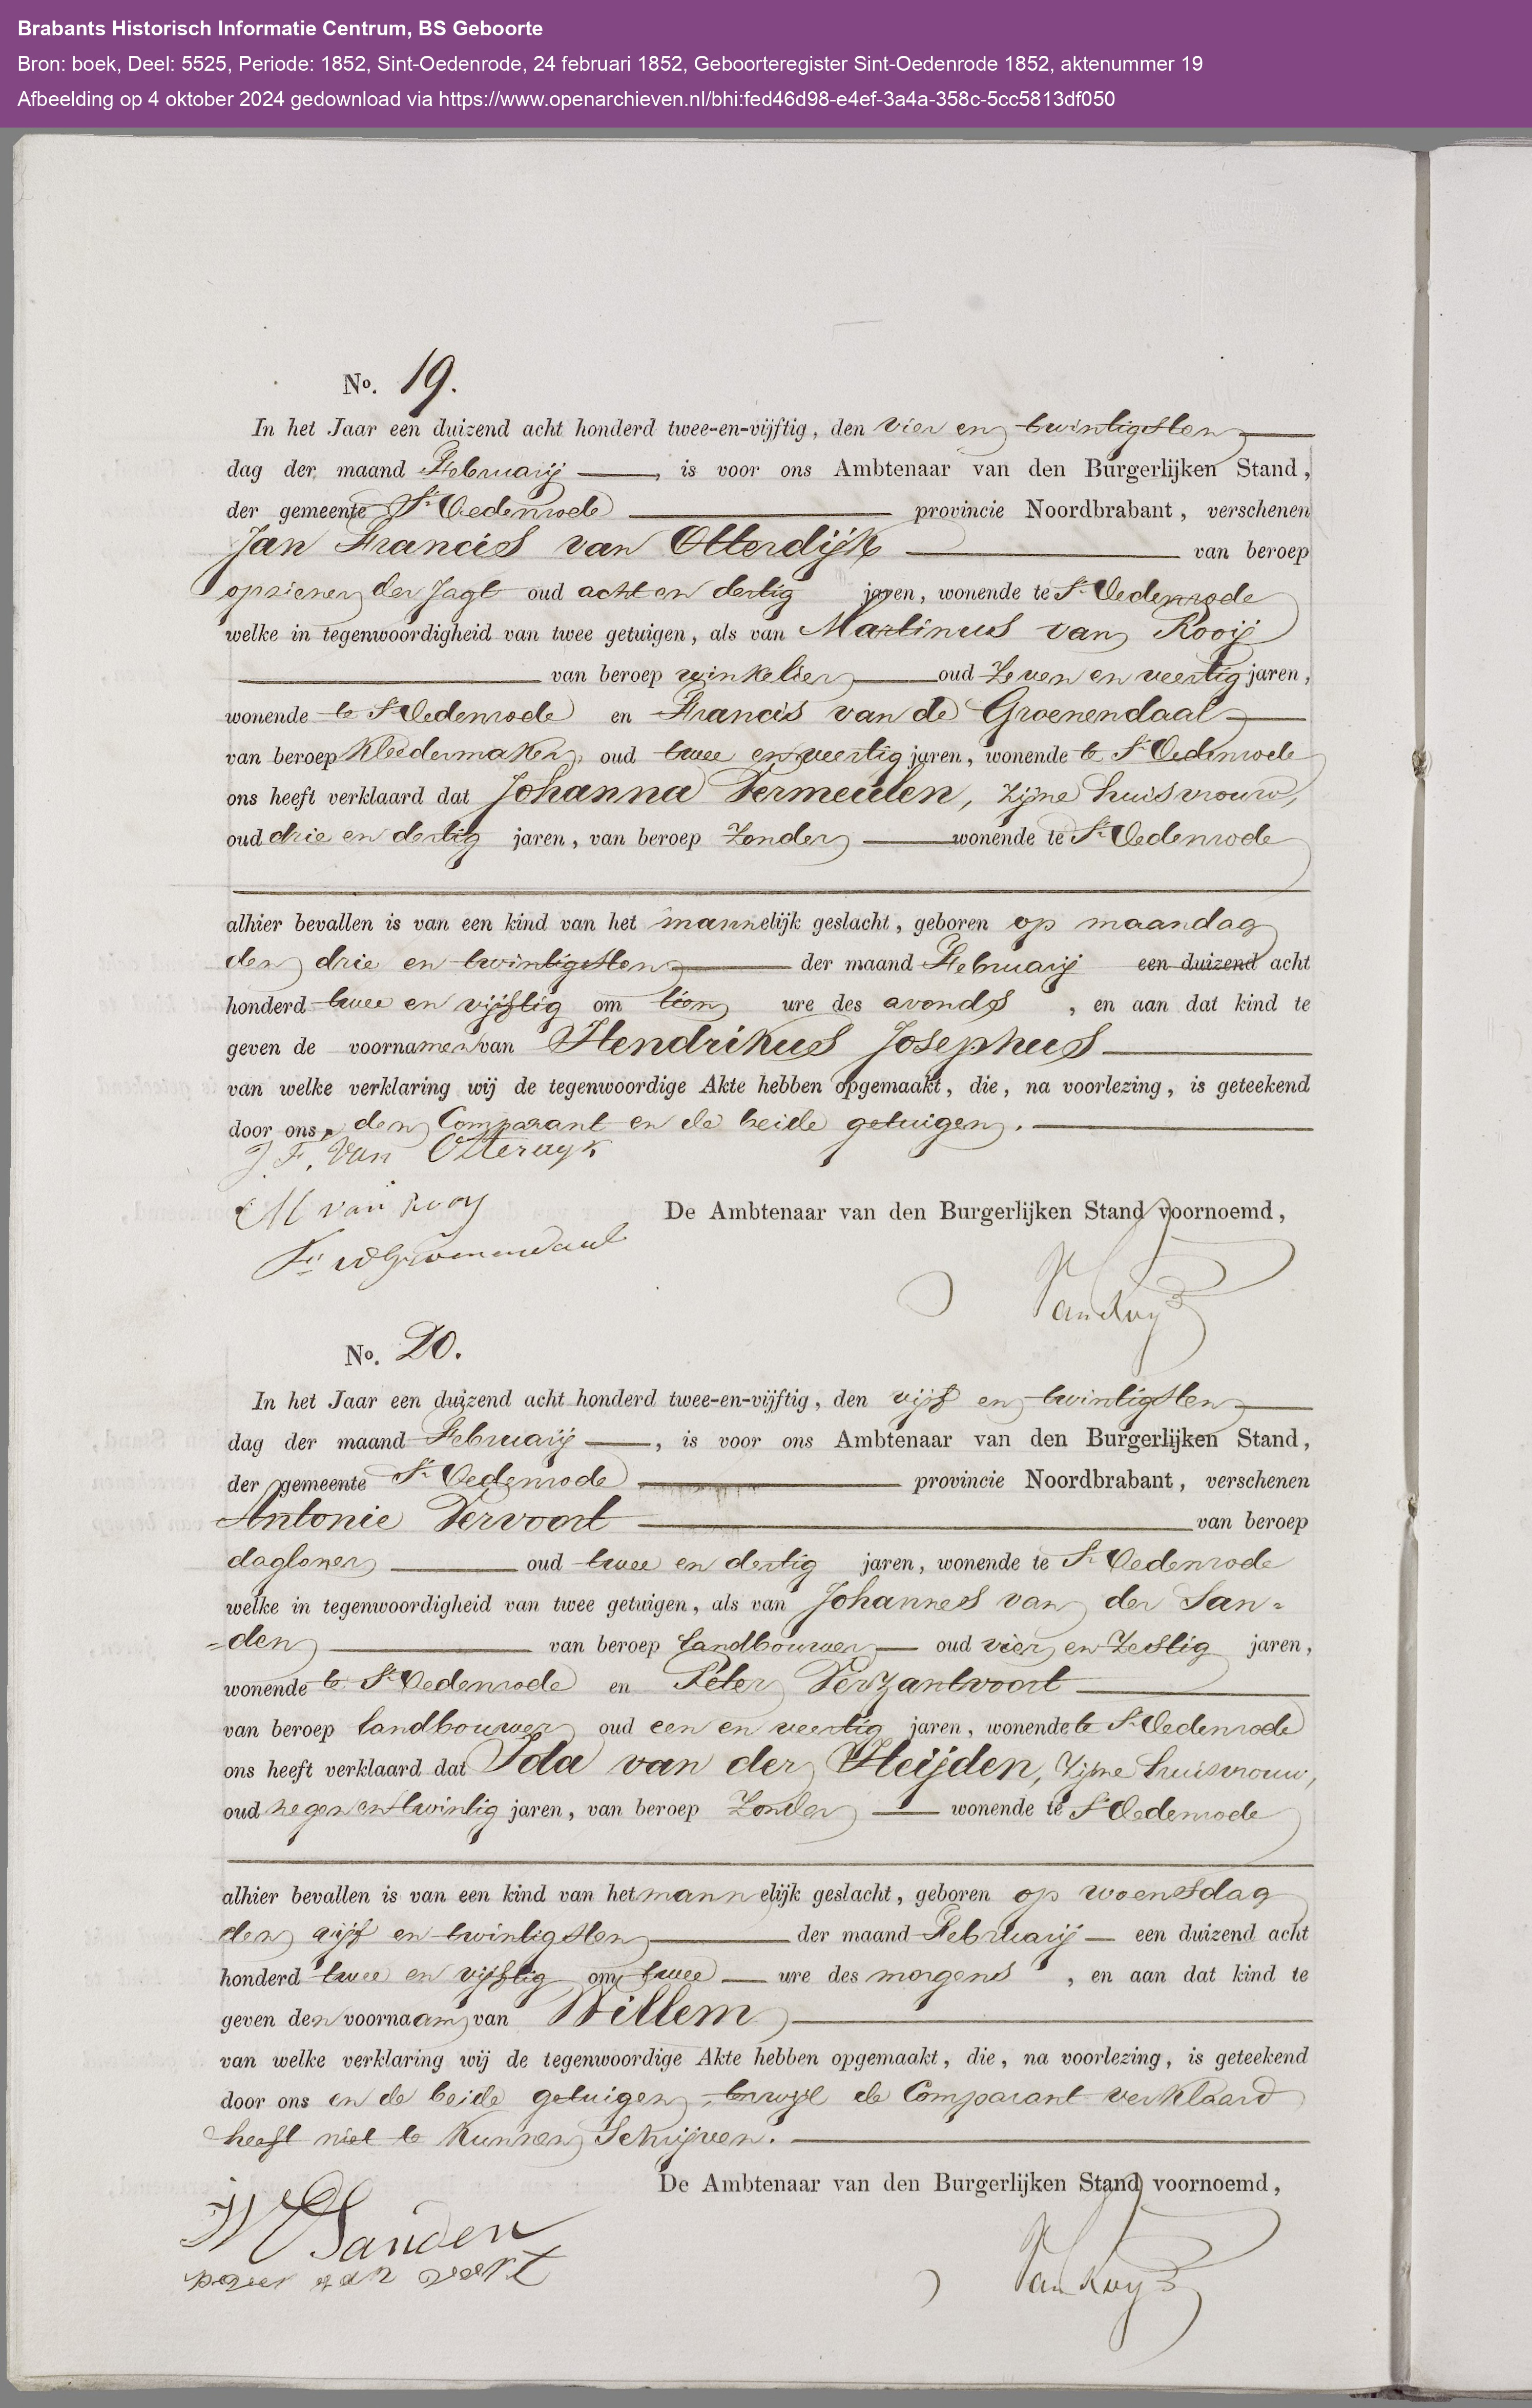 Brabants Historisch Informatie Centrum, BS Geboorte
Bron: boek, Deel: 5525, Periode: 1852, Sint-Oedenrode, 24 februari 1852, Geboorteregister Sint-Oedenrode 1852, aktenummer 19
Afbeelding op 4 oktober 2024 gedownload via https://www.openarchieven.nl/bhi:fed46d98-e4ef-3a4a-358c-5cc5813df050
No. 19.
In het Jaar een duizend acht honderd twee-en-vijftig, den vier en twintigsten
dag der maand Februarij, is voor ons Ambtenaar van den Burgerlijken Stand,
der gemeente St. Oedenrode provincie Noordbrabant, verschenen
Jan Francis van Otterdijk van beroep
opziener der Jagt oud acht en dertig jaren, wonende te St. Oedenrode
welke in tegenwoordigheid van twee getuigen, als van Martinus van Rooij
van beroep winkelier oud Zeven en veertig jaren,
wonende te St. Oedenrode en Francis van de Groenendaal
van beroep Kleedermaker, oud twee en veertig jaren, wonende te St. Oedenrode
ons heeft verklaard dat Johanna Vermeulen, zijne huisvrouw,
oud drie en dertig jaren, van beroep Zonder wonende te St. Oedenrode
alhier bevallen is van een kind van het mannelijk geslacht, geboren op maandag
den drie en twintigsten der maand Februarij een duizend acht
honderd twee en vijftig om tien ure des avonds, en aan dat kind te
geven de voornamen van Hendrikus Josephus
van welke verklaring wij de tegenwoordige Akte hebben opgemaakt, die, na voorlezing, is geteekend
door ons, den Comparant en de beide getuigen.
J. F. Van Otterdyk
M van Rooy
De Ambtenaar van den Burgerlijken Stand voornoemd,
Fr vd Groenendaal
No. 20.
In het Jaar een duizend acht honderd twee-en-vijftig, den vijf en twintigsten
dag der maand Februarij, is voor ons Ambtenaar van den Burgerlijken Stand,
der gemeente St. Oedenrode provincie Noordbrabant, verschenen
Antonie Vervoort van beroep
dagloner oud twee en dertig jaren, wonende te St. Oedenrode
welke in tegenwoordigheid van twee getuigen, als van Johannes van der San=
=den van beroep landbouwer oud vier en Zestig jaren,
wonende te St. Oedenrode en Peter Verzantvoort
van beroep landbouwer oud een en veertig jaren, wonende te St. Oedenrode
ons heeft verklaard dat Ida van der Heijden, Zijne huisvrouw,
oud negen en twintig jaren, van beroep Zonder wonende te St. Oedenrode
alhier bevallen is van een kind van het mannelijk geslacht, geboren op woensdag
den vijf en twintigsten der maand Februarij een duizend acht
honderd twee en vijftig om twee ure des morgens, en aan dat kind te
geven den voornaam van Willem
van welke verklaring wij de tegenwoordige Akte hebben opgemaakt, die, na voorlezing, is geteekend
door ons en de beide getuigen, terwijl de Comparant verklaard
heeft niet te kunnen Schrijven.
De Ambtenaar van den Burgerlijken Stand voornoemd,
Sanden